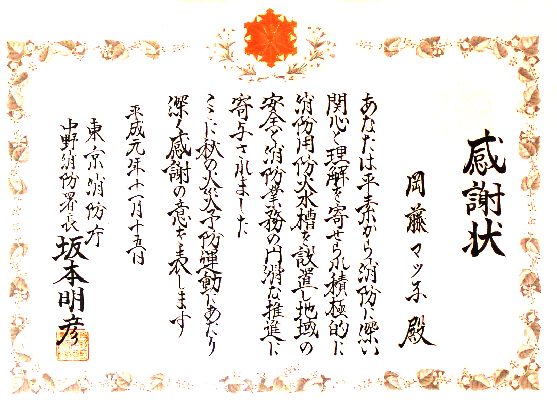 感謝状
岡藤マツ子殿
あなたは平素から消防に深い
関心と理解を寄せられ積極的に
消防用防火水槽を設置し地域の
安全と消防業務の円滑な推進に
寄与されました
ここに秋の火災予防運動にあたり
深く感謝の意を表します
平成元年十一月十五日
東京消防庁
中野消防署長 坂本明彦